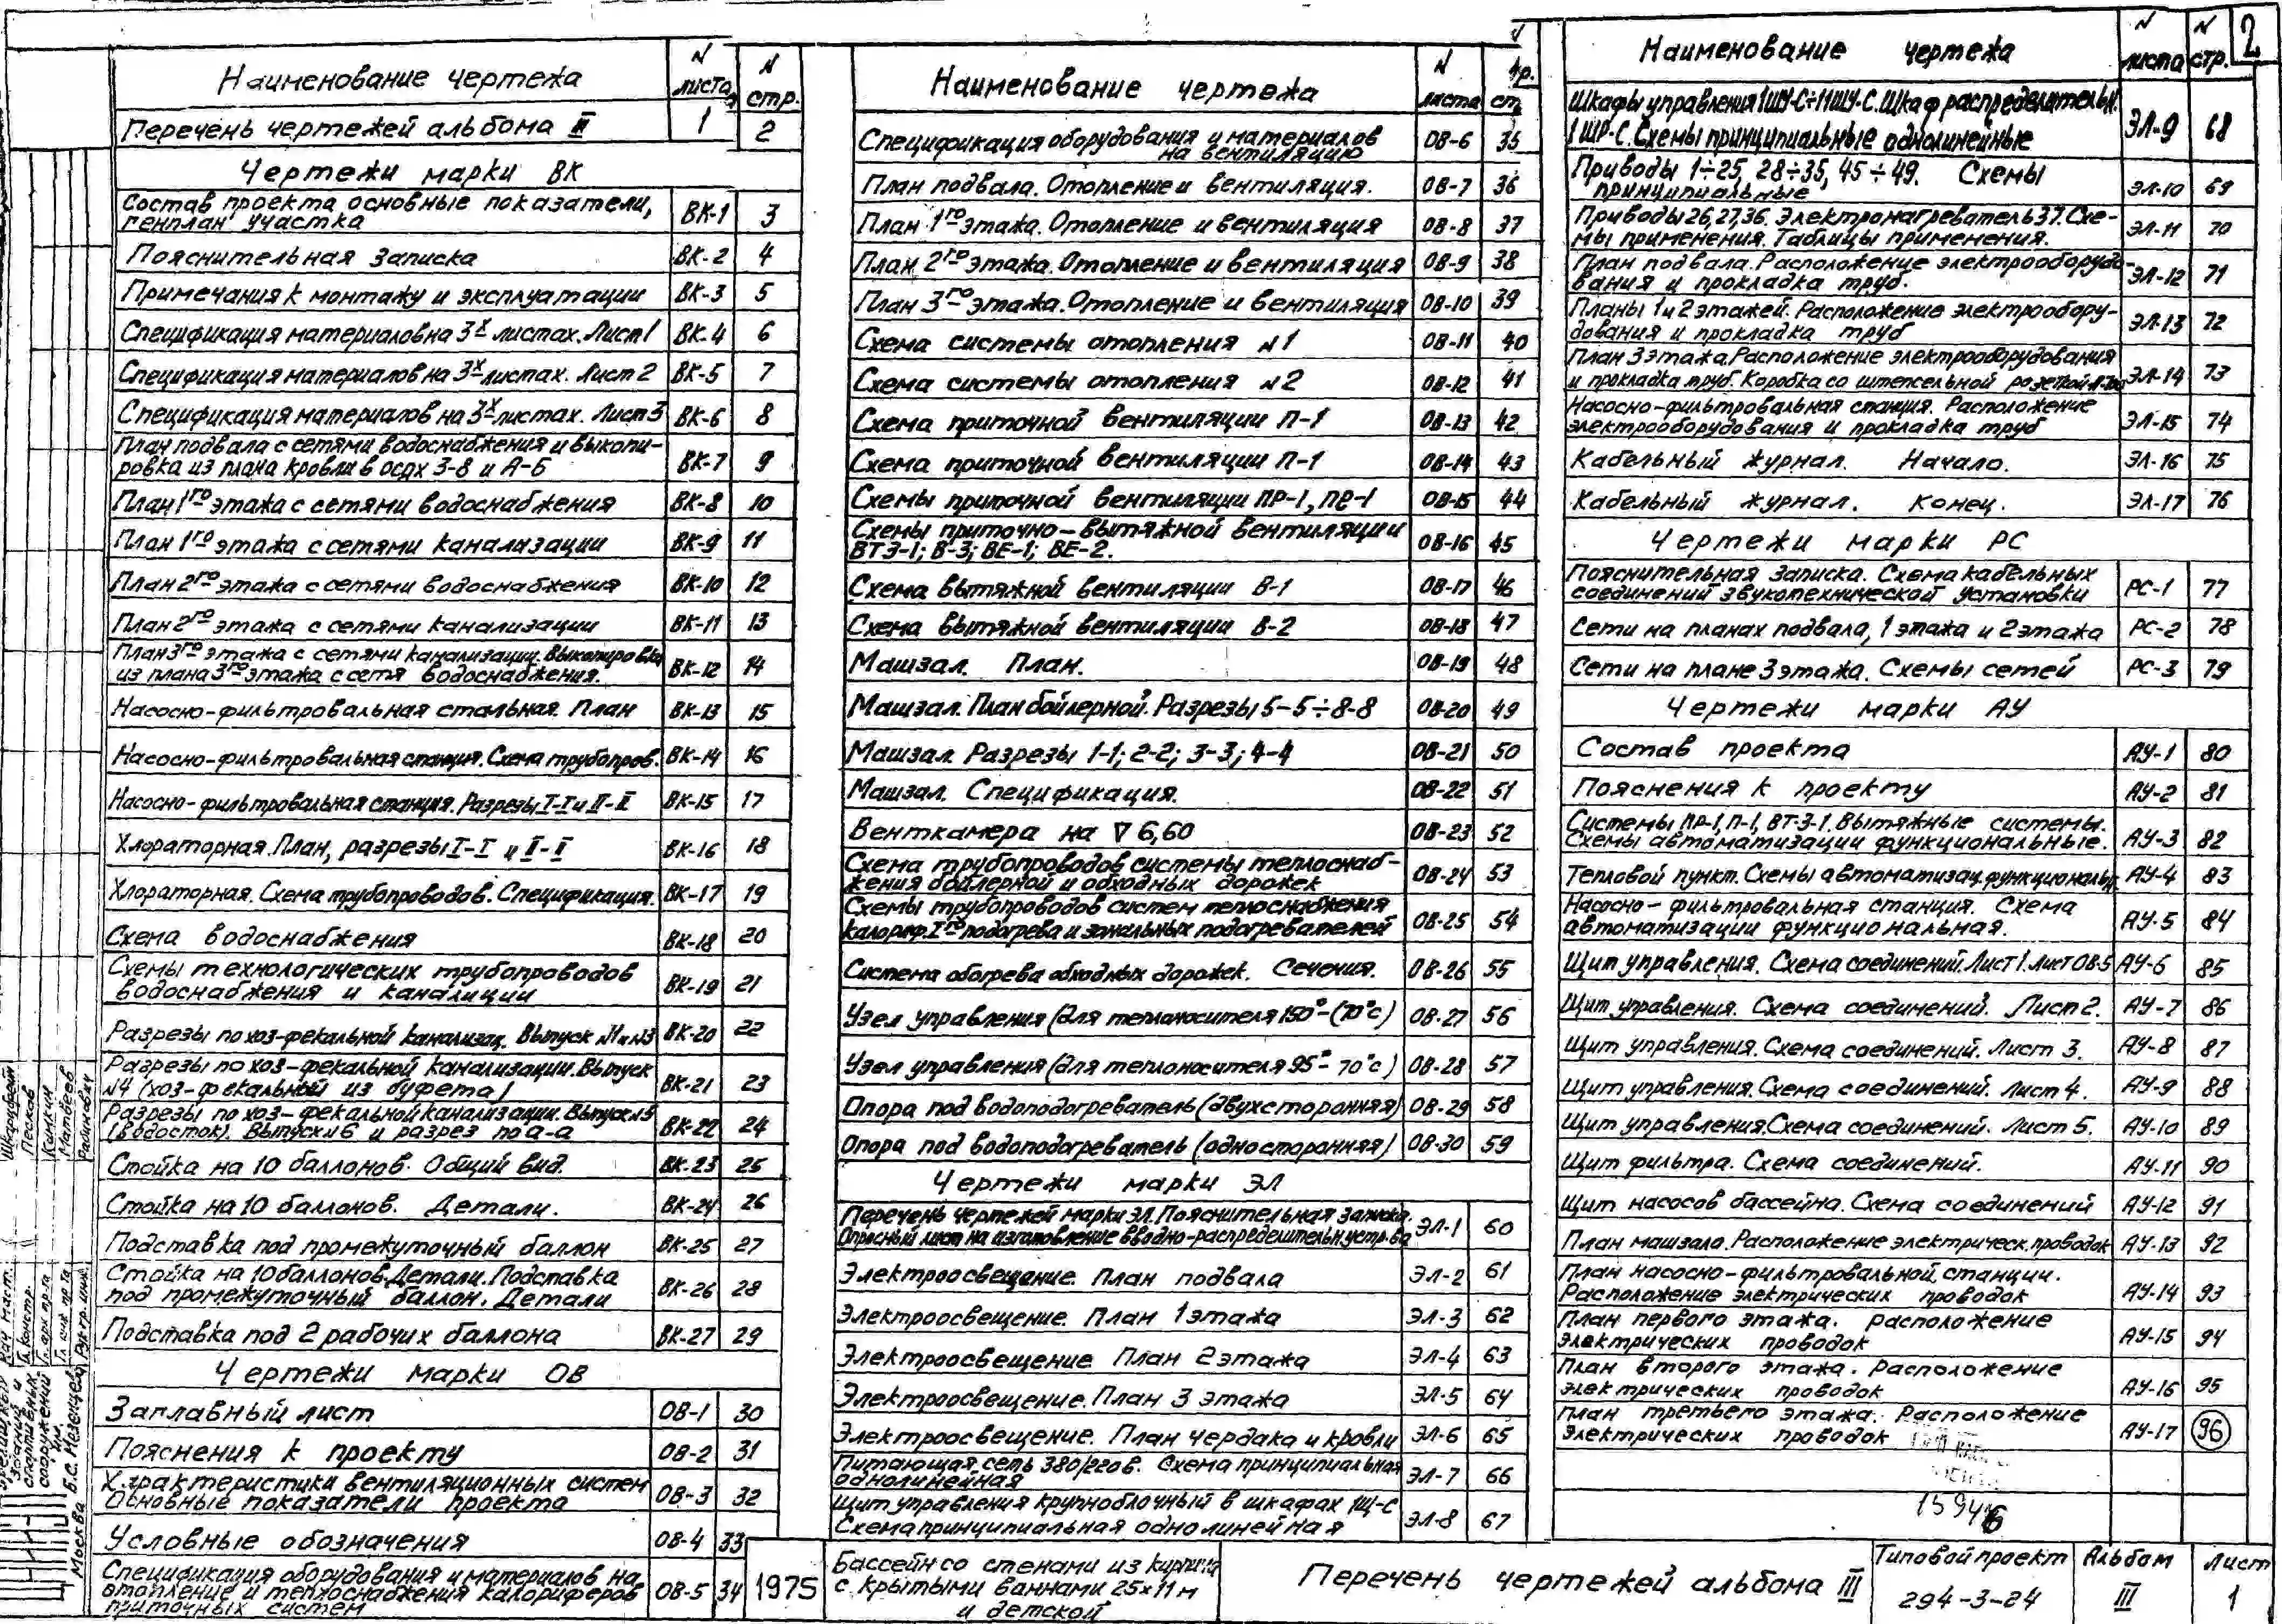 2
Наименование чертежа N листа N стр.
Перечень чертежей альбома III 1 2
Чертежи марки ВК
Состав проекта основные показатели,
генплан участка ВК-1 3
Пояснительная записка ВК-2 4
Примечания к монтажу и эксплуатации ВК-3 5
Спецификация материалов на 3х листах. Лист 1 ВК-4 6
Спецификация материалов на 3х листах. Лист 2 ВК-5 7
Спецификация материалов на 3х листах. Лист 3 ВК-6 8
План подвала с сетями водоснабжения и выкопи-
ровка из плана кровли в осях 3-8 и А-Б ВК-7 9
План 1го этажа с сетями водоснабжения ВК-8 10
План 1го этажа с сетями канализации ВК-9 11
План 2го этажа с сетями водоснабжения ВК-10 12
План 2го этажа с сетями канализации ВК-11 13
План 3го этажа с сетями канализации. Выкопировка
из плана 3го этажа с сетя водоснабжения. ВК-12 14
Насосно-фильтровальная стальная. План ВК-13 15
Насосно-фильтровальная станция. Схема трубопров. ВК-14 16
Насосно-фильтровальная станция. Разрезы I-I и II-II ВК-15 17
Хлораторная. План, разрезы I-I и II-II ВК-16 18
Хлораторная. Схема трубопроводов. Спецификация. ВК-17 19
Схема водоснабжения ВК-18 20
Схемы технологических трубопроводов
водоснабжения и каналиции ВК-19 21
Разрезы по хоз-фекальной канализац. Выпуск N1 и N3 ВК-20 22
Разрезы по хоз-фекальной канализации. Выпуск
N4 (хоз-фекальный из буфета) ВК-21 23
Разрезы по хоз-фекальной канализации. Выпуск N5
(водосток). Выпуск N6 и разрез по а-а ВК-22 24
Стойка на 10 баллонов. Общий вид. ВК-23 25
Стойка на 10 баллонов. Детали. ВК-24 26
Подставка под промежуточный баллон ВК-25 27
Стойка на 10 баллонов. Детали. Подставка
под промежуточный баллон. Детали ВК-26 28
Подставка под 2 рабочих баллона ВК-27 29
Чертежи марки ОВ
Заглавный лист ОВ-1 30
Пояснения к проекту ОВ-2 31
Характеристики вентиляционных систем
Основные показатели проекта ОВ-3 32
Условные обозначения ОВ-4 33
Спецификация оборудования и материалов на
отопление и теплоснабжения калориферов
приточных систем ОВ-5 34
Наименование чертежа N листа
Спецификация оборудования и материалов
на вентиляцию ОВ-6 35
План подвала. Отопление и вентиляция. ОВ-7 36
План 1го этажа. Отопление и вентиляция ОВ-8 37
План 2го этажа. Отопление и вентиляция ОВ-9 38
План 3го этажа. Отопление и вентиляция ОВ-10 39
Схема системы отопления N1 ОВ-11 40
Схема системы отопления N2 ОВ-12 41
Схема приточной вентиляции П-1 ОВ-13 42
Схема приточной вентиляции П-1 ОВ-14 43
Схемы приточной вентиляции ПР-1, ПР-1 ОВ-15 44
Схемы приточно-вытяжной вентиляции
ВТЗ-1; В-3; ВЕ-1; ВЕ-2. ОВ-16 45
Схема вытяжной вентиляции В-1 ОВ-17 46
Схема вытяжной вентиляции В-2 ОВ-18 47
Машзал. План. ОВ-19 48
Машзал. План бойлерной. Разрезы 5-5÷8-8 ОВ-20 49
Машзал. Разрезы 1-1; 2-2; 3-3; 4-4 ОВ-21 50
Машзал. Спецификация. ОВ-22 51
Венткамера на ∇ 6,60 ОВ-23 52
Схема трубопроводов системы теплоснаб-
жения бойлерной и обходных дорожек ОВ-24 53
Схемы трубопроводов систем теплоснабжения
калориф. Iго подогрева и зональных подогревателей ОВ-25 54
Система обогрева обходных дорожек. Сечения. ОВ-26 55
Узел управления (для теплоносителя 150°-(70°с) ОВ-27 56
Узел управления (для теплоносителя 95°-70°с) ОВ-28 57
Опора под водоподогреватель (двухсторонняя) ОВ-29 58
Опора под водоподогреватель (односторонняя) ОВ-30 59
Чертежи марки ЭЛ
Перечень чертежей марки ЭЛ. Пояснительная записка.
Опросный лист на изготовление вводно-распределительн устр-ва ЭЛ-1 60
Электроосвещение План подвала ЭЛ-2 61
Электроосвещение. План 1 этажа ЭЛ-3 62
Электроосвещение План 2 этажа ЭЛ-4 63
Электроосвещение. План 3 этажа ЭЛ-5 64
Электроосвещение. План чердака и кровли ЭЛ-6 65
Питающая сеть 380/220в. Схема принципиальная
однолинейная ЭЛ-7 66
Щит управления крупноблочный в шкафах 1Щ-С
Схема принципиальная однолинейная ЭЛ-8 67
Наименование чертежа N листа N стр.
Шкафы управления 1ШУ-С÷11ШУ-С. Шкаф распределительн.
1ШР-С. Схемы принципиальные однолинейные ЭЛ-9 68
Приводы 1÷25, 28÷35, 45÷49. Схемы
принципиальные ЭЛ-10 69
Приводы 26, 27, 36. Электронагреватель 37. Схе-
мы применения. Таблицы применения. ЭЛ-11 70
План подвала. Расположение электрооборудо-
вания и прокладка труб. ЭЛ-12 71
Планы 1 и 2 этажей. Расположение электрообору-
дования и прокладка труб ЭЛ-13 72
План 3 этажа. Расположение электрооборудования
и прокладка труб. Коробка со штепсельной розеткой ЭЛ-14 73
Насосно-фильтровальная станция. Расположение
электрооборудования и прокладка труб ЭЛ-15 74
Кабельный журнал. Начало. ЭЛ-16 75
Кабельный журнал. Конец. ЭЛ-17 76
Чертежи марки РС
Пояснительная записка. Схема кабельных
соединений звукотехнической установки РС-1 77
Сети на планах подвала, 1 этажа и 2 этажа РС-2 78
Сети на плане 3 этажа. Схемы сетей РС-3 79
Чертежи марки АУ
Состав проекта АУ-1 80
Пояснения к проекту АУ-2 81
Системы ПР-1, П-1, ВТ-З-1. Вытяжные системы.
Схемы автоматизации функциональные. АУ-3 82
Тепловой пункт. Схемы автоматизац. функциональн. АУ-4 83
Насосно-фильтровальная станция. Схема
автоматизации функциональная. АУ-5 84
Щит управления. Схема соединений. Лист 1. Лист ОВ-5 АУ-6 85
Щит управления. Схема соединений. Лист 2. АУ-7 86
Щит управления. Схема соединений. Лист 3. АУ-8 87
Щит управления. Схема соединений. Лист 4. АУ-9 88
Щит управления. Схема соединений. Лист 5. АУ-10 89
Щит фильтра. Схема соединений. АУ-11 90
Щит насосов бассейна. Схема соединений АУ-12 91
План машзала. Расположение электрическ. проводок АУ-13 92
План насосно-фильтровальной станции.
Расположение электрических проводок АУ-14 93
План первого этажа. расположение
электрических проводок АУ-15 94
План второго этажа. Расположение
электрических проводок АУ-16 95
План третьего этажа. Расположение
электрических проводок АУ-17 96
1975
Бассейн со стенами из кирпича
с крытыми ваннами 25x11м
и детской
Перечень чертежей альбома III
Типовой проект
294-3-24
Альбом
III
Лист
1
Песков
Кимкин
Матвеев
Рабинович
Москва